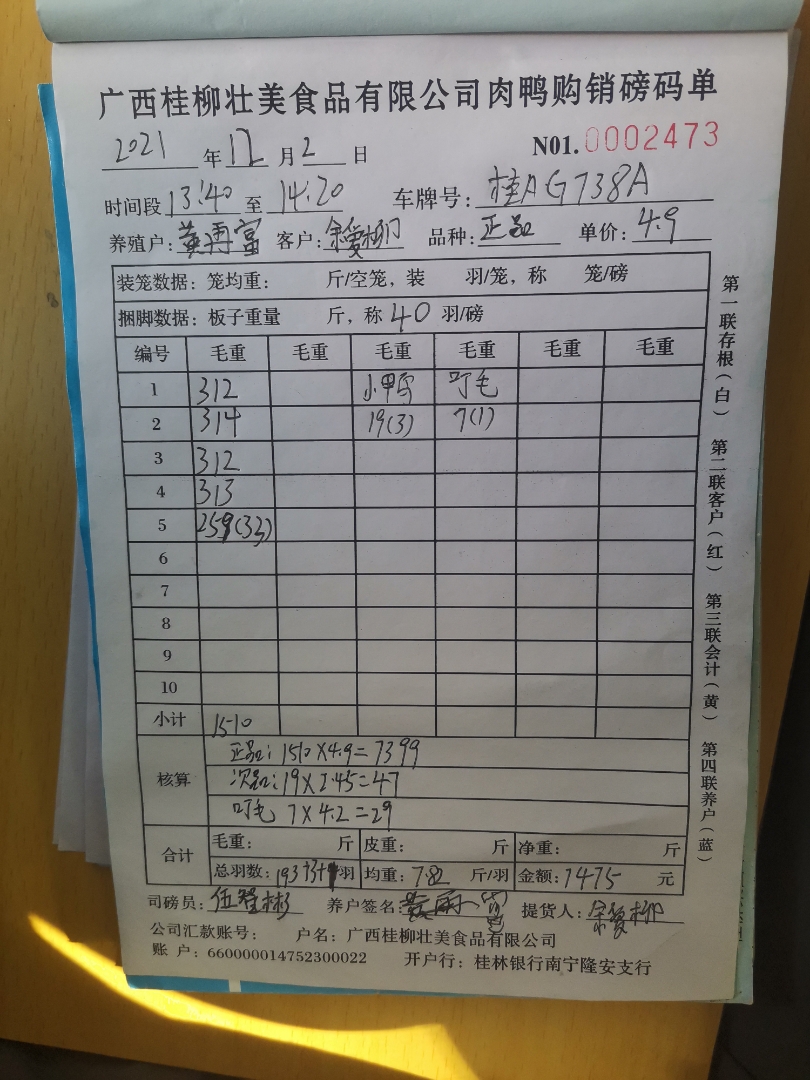 广西桂柳壮美食品有限公司肉鸭购销磅码单
2021年12月2日 N01.0002473
时间段13:40至14:20 车牌号:桂AG738A
养殖户:黄再富 客户:余爱柳 品种:正品 单价:4.9
装笼数据:笼均重: 斤/空笼,装 羽/笼,称 笼/磅
捆脚数据:板子重量 斤,称40羽/磅
编号 毛重 毛重 毛重 毛重 毛重 毛重
1 312 小鸭 叮毛
2 314 19(3) 7(1)
3 312
4 313
5 259(33)
6
7
8
9
10
小计 1510
核算 正品:1510×4.9=7399
次品:19×2.45=47
叮毛 7×4.2=29
合计 毛重: 斤 皮重: 斤 净重: 斤
总羽数:193+3+1羽 均重:7.82斤/羽 金额:7475元
司磅员: 养户签名: 提货人:余爱柳
公司汇款账号: 户名:广西桂柳壮美食品有限公司
账 户:660000014752300022 开户行:桂林银行南宁隆安支行
第一联存根(白) 第二联客户(红) 第三联会计(黄) 第四联养户(蓝)